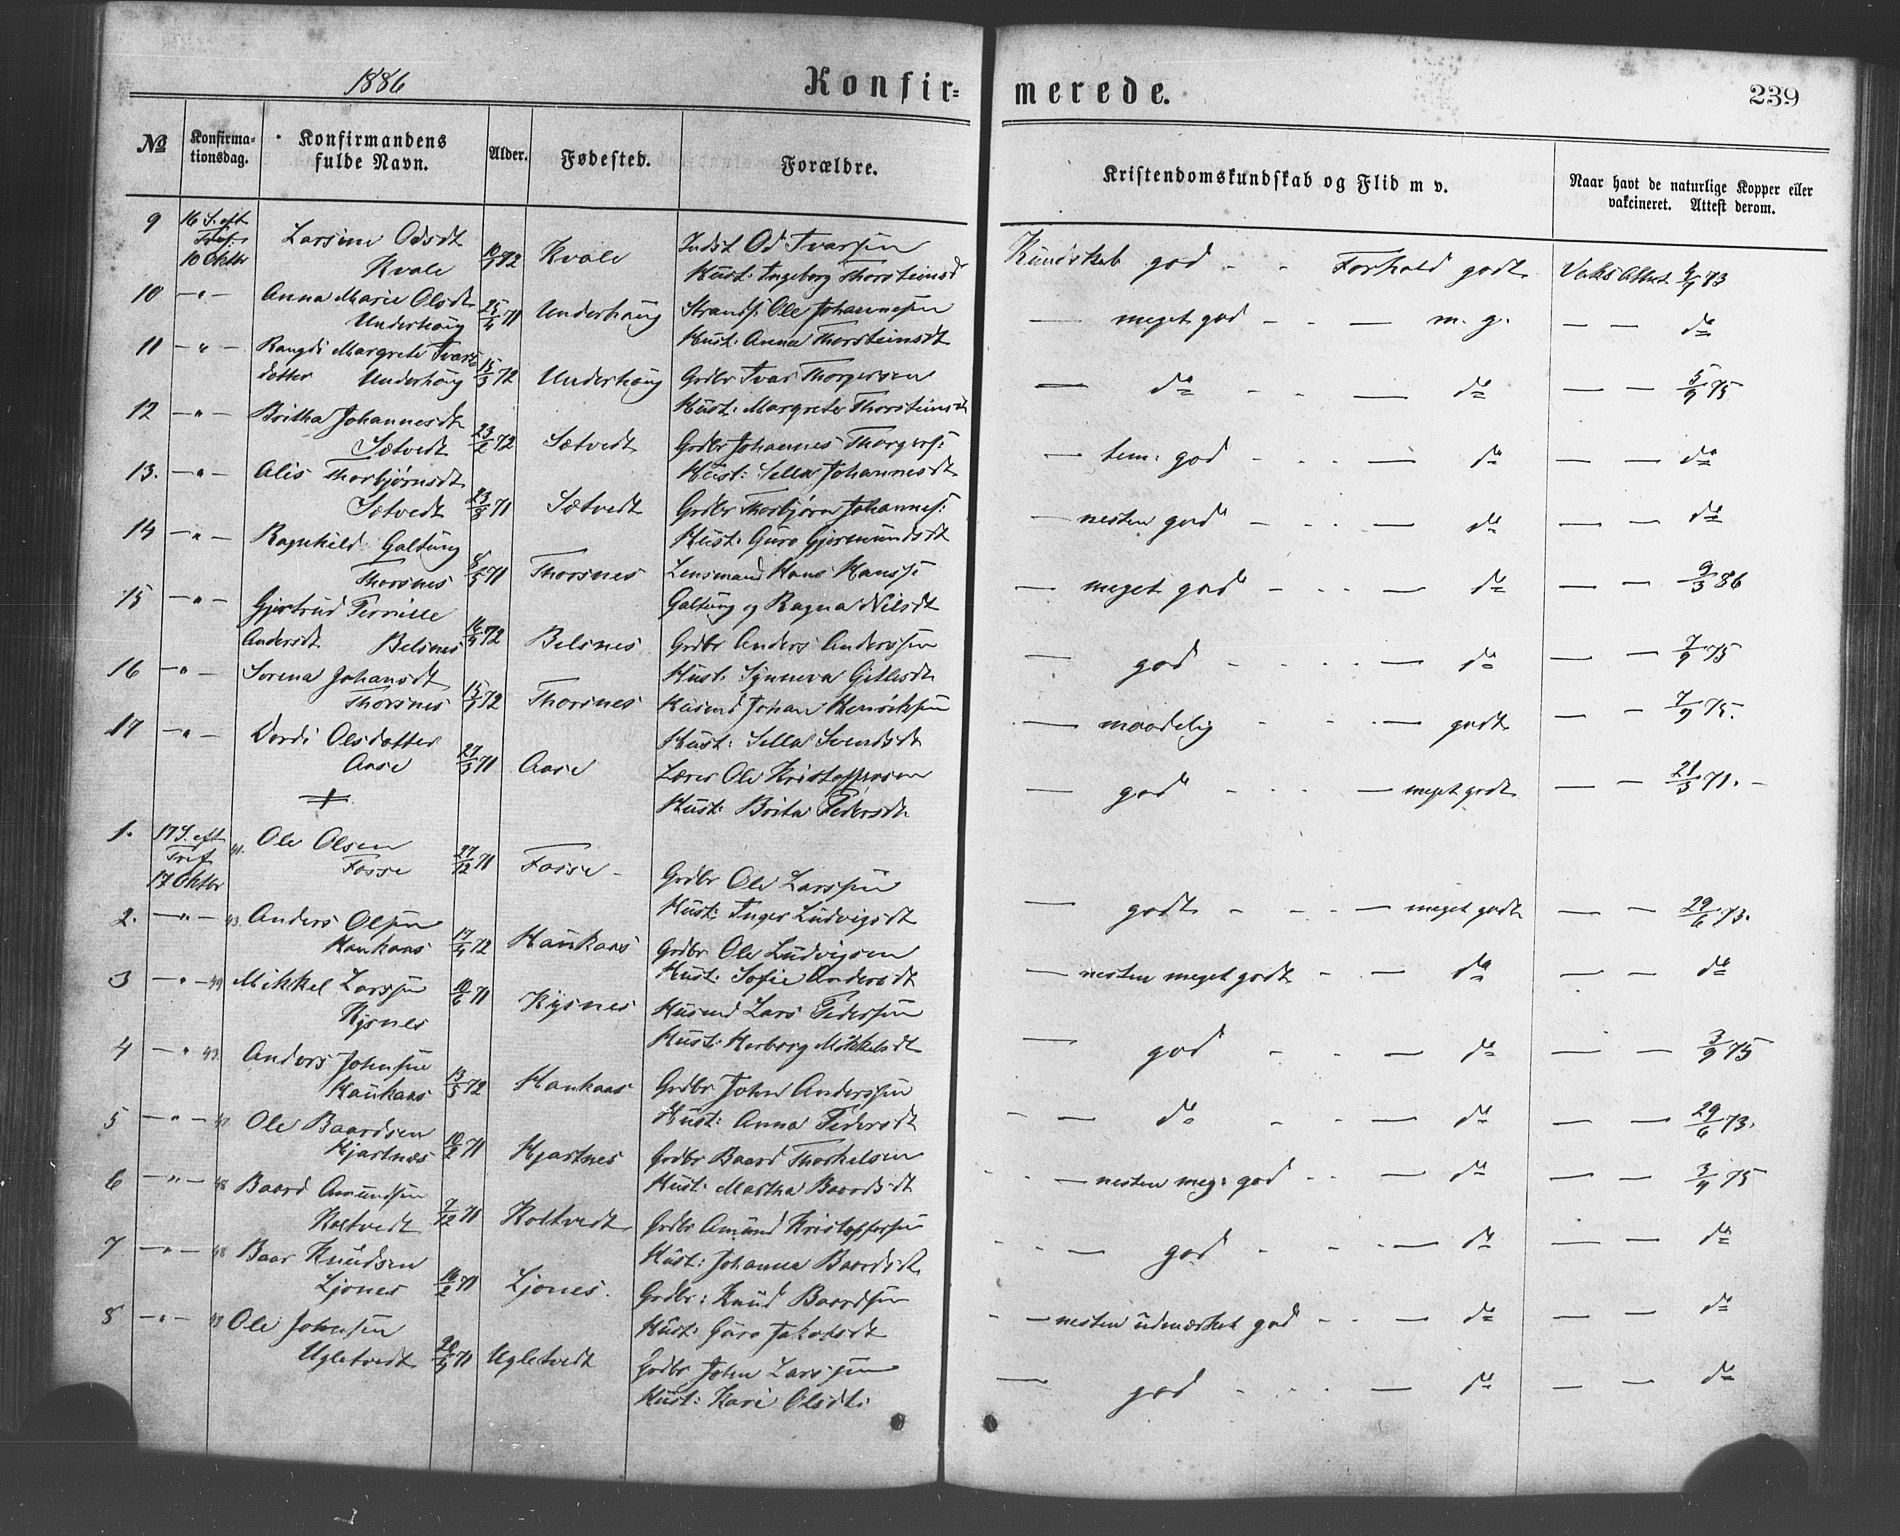 1886 Konfir= merede. 239
№ Konfirma-tionsdag. Konfirmandens fulde Navn. Alder. Fødested. Forældre. Kristendomskundskab og Flid m v. Naar havt de naturlige Kopper eller vakcineret. Attest derom.
9 16 S. eft Tref. 10 Oktbr Larsine Odsdt Kvale 72 Kvale Indst Od Ivarsen
Hust: Ingeborg Thorsteinsd Kundskab god - - Forhold godt
10 — " — Anna Marie Olsdt Underhoug 25/4 71 Underhoug Strands. Ole Johannesen
Hust: Anna Thorsteinsdt — meget god - - — m. g. — — do
11 — " — Rangdi Margrete Ivars dotter Underhoug 15/3 72 Underhoug Grdbr Ivar Thorgersen
Hust: Margrete Thorsteinsdt — do - - — do — — 5/9 75
12 — " — Britha Johannesdt Sætvedt 23/2 72 Sætvedt Grdbr Johannes Thorgers:
Hust: Sella Johannesdt — tem: god - - - — do — — do
13. — " — Alis Thorbjørnsdt Sætvedt 71 Sætvedt Grdbr Thorbjørn Johannes:
Hust: Guro Gjermundsdt — nesten god - - - — do — — do
14 — " — Ragnhild Galtung Thorsnes 71 Thorsnes Lensmand Hans Hanss:
Galtung og Ragna Nilsdt — meget god - - - — do — — 9/3 86
15 — " — Gjertrud Pernille Andersdt Belsnes 72 Belsnes Grdbr Anders Anderssen
Hust: Synneva Gitlesdt — god - - - — do — — 7/9 75
16 — " — Sorena Johansdt Thorsnes 72 Thorsnes Husmd Johan Henriksen
Hust: Sella Svendsdt — maadelig - - — godt — — 7/9 75.
17 — " — Dordi Olsdotter Aase 27/3 71 Aase Lærer Ole Kristoffersen
Hust: Brita Pedersdt — god - - - — meget godt — 21/3 71. —
1. 17 S. eft Tref 17 Oktbr Ole Olsen Fosse 27/12 71 Fosse - Grdbr Ole Larssen
Hust: Inger Ludvigsdt — godt - - - — meget godt — — 29/6 73.
2. — " — Anders Olsen Haukaas 17/4 72 Haukaas Grdbr Ole Ludvigsen
Hust: Sofie Andersdt — nesten meget godt - - — do — — do
3 — " — 49 Mikkel Larssen Kysnes 10/6 71 Kysnes Husmd Lars Pederssen
Hust: Herborg Mikkelsdt — god - - — do — — 3/9 75
4 — " — Anders Johnsen Haukaas 13/5 72 Haukaas Grdbr John Anderssen
Hust: Anna Pedersdt — do - - — do — — 29/6 73.
5 — " — Ole Baardsen Kjartnæs 10/2 71 Kjartnes Grdbr Baard Thorkelsen
Hust: Martha Baardsdt — nesten meg: god - - — do — — 3/9 75
6 — " — 48 Baard Amundsen Koltvedt 7/12 71 Koltvedt Grdbr Amund Kristoffersen
Hust: Johanna Baardsdt — god - - - — do — — do
7 — " — 48 Baar Knudsen Ljones 16/2 71 Ljones. Grdbr: Knud Baardsen
Hust: Guro Jakobsdt — nesten udmærket god - - — do — — do
8 — " — 48 Ole Johnsen Ugletvedt 71 Ugletvedt Grdbr John Larssen
Hust: Kari Olsdt: — god - - - — do — — do